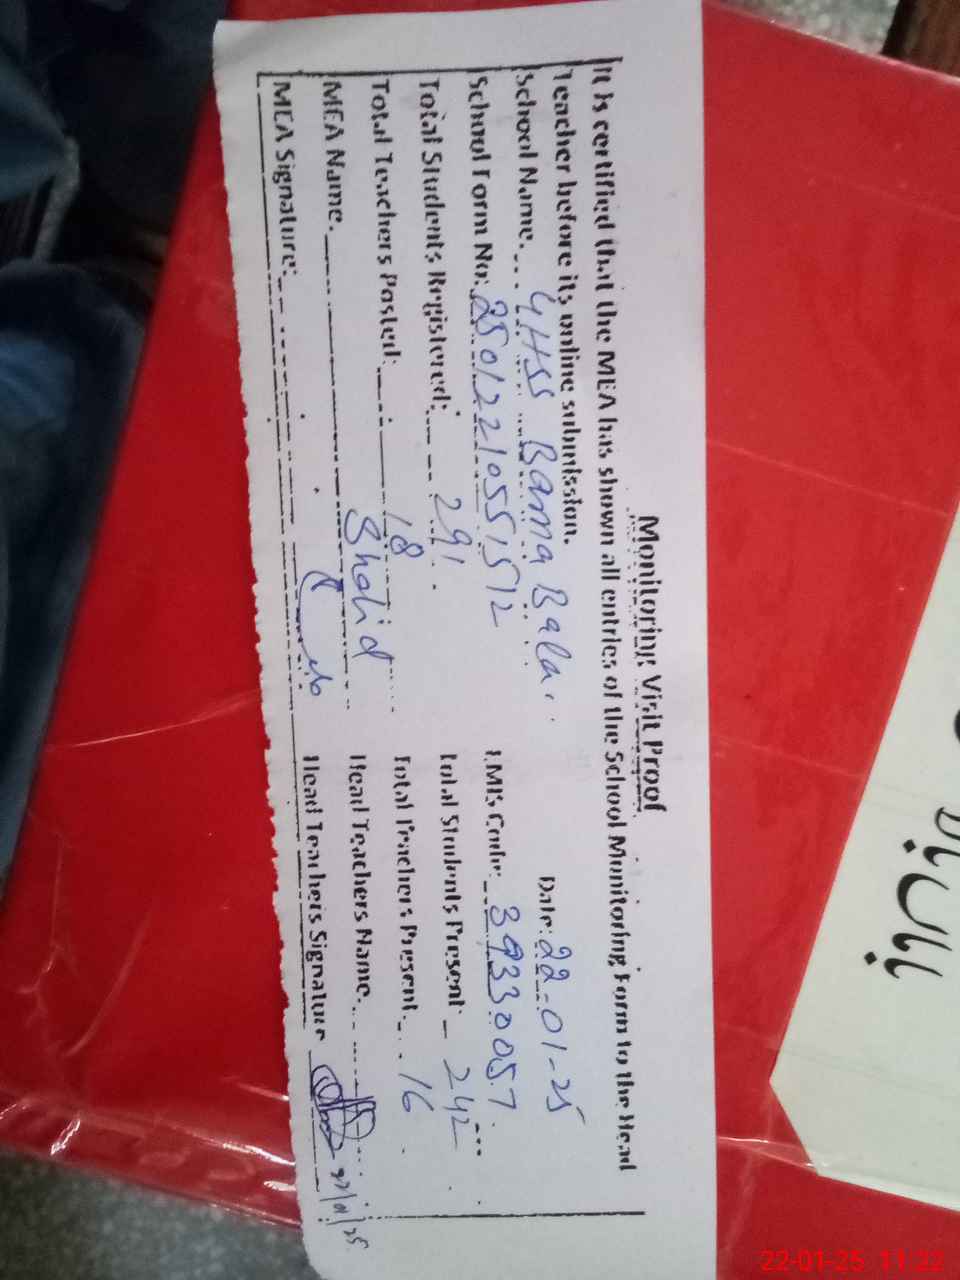 Monitoring Visit Proof
Date: 22-01-25
It is certified that the MEA has shown all entries of the School Monitoring Form to the Head
Teacher before its online submission.
School Name. GHSS Bama Bala.
School Form No: 25012210551512 EMIS Code: 39330057
Total Students Registered: 291 Total Students Present 242
Total Teachers Posted: 18 Total Teachers Present. 16
MEA Name. Shahid Head Teachers Name.
MEA Signature: Head Teachers Signature 22/01/25
22-01-25 11:22